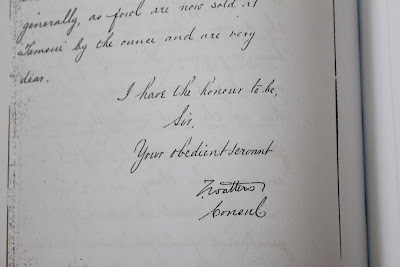 generally, as fowl are now sold at
Tamsui by the ounce and are very
dear.
I have the honour to be,
Sir,
Your obedient servant
T. Watters
Consul